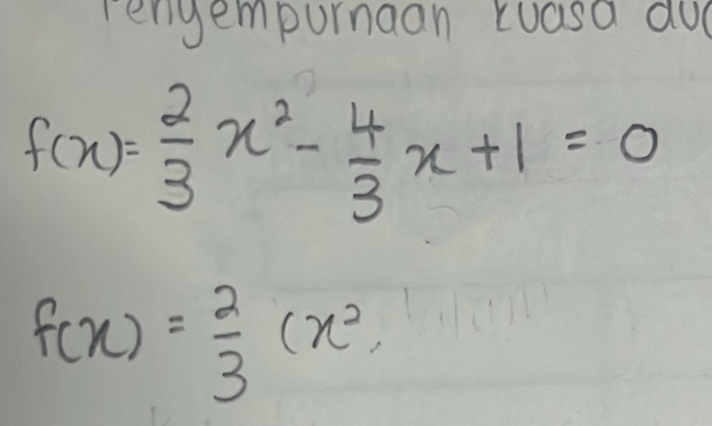 Penyempurnaan kuasa
f(x)= 2/3 x² - 4/3 x + 1 = 0
f(x) = 2/3 (x²